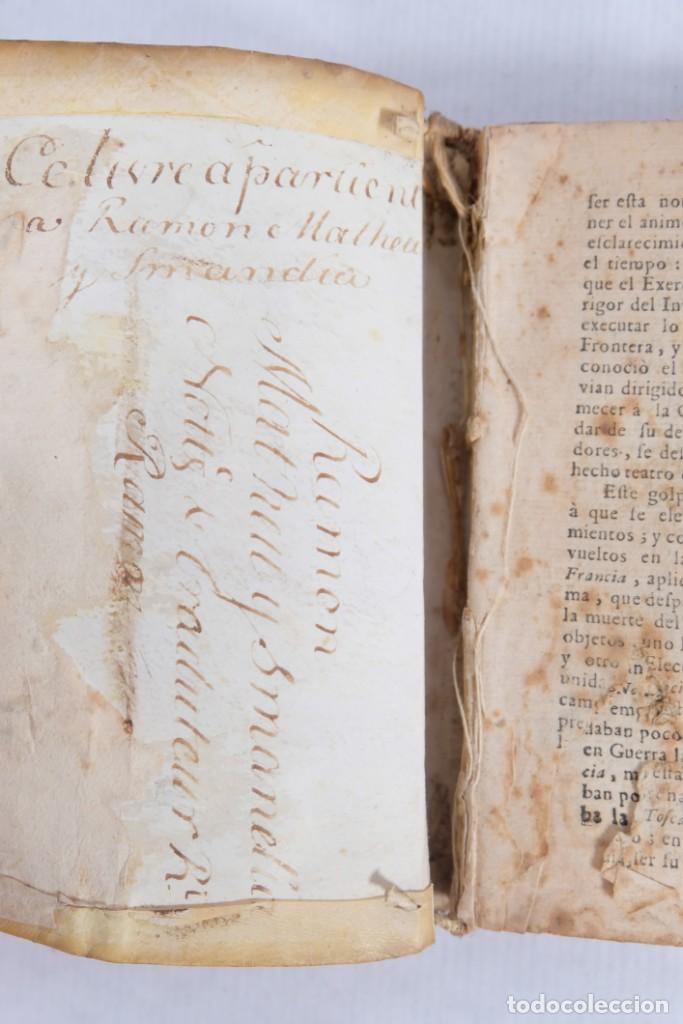 Ce livre apartient
a Ramon Matheu
y Smandia
Ramon
Matheu y Smandia
Nous le traduteur R
Ramo
ser esta no
ner el anim
esclarecimie
el tiempo:
que el Exer
rigor del In
executar lo
Frontera, y
conociò el
vian dirigido
mecer à la
dar de su de
dores, se des
hecho teatro
Este golp
à que se ele
mientos; y co
vueltos en la
Francia, aplic
ma, que desp
la muerte del
objetos, uno
y otro Elec
unid
cam em
daban poco
en Guerra l
cia, m esta
ban po na
ba la Tosca
o; en
ser su
todocoleccion